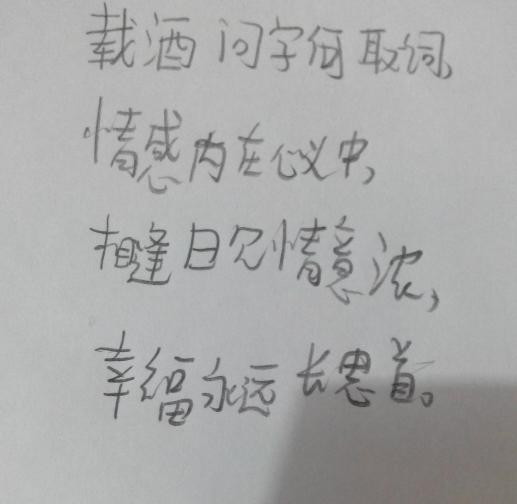 载酒问字何取词,
情感内在心义中,
相逢日欠情意浓,
幸福永远长思首。